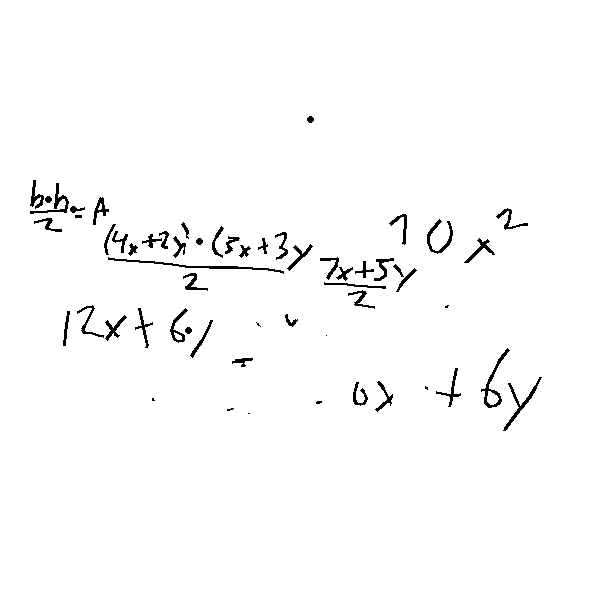 b·h/2 = A
(4x+2y)·(3x+3y/2 7x+5y/2 10x²
12x+6y =
0x + 6y